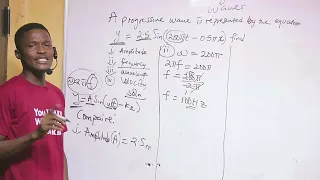 Waves
A progressive wave is represented by the equation
y = 2.5 Sin (200πt - 0.5πx) find
i. Amplitude
ii. frequency
iii. wavelength
iv. Velocity
2πf
y = A Sin (ωt - Kx)
Compare:
i. Amplitude (A) = 2.5m
ii. ω = 200π
2πf = 200π
f = 
f = 100Hz
YOU